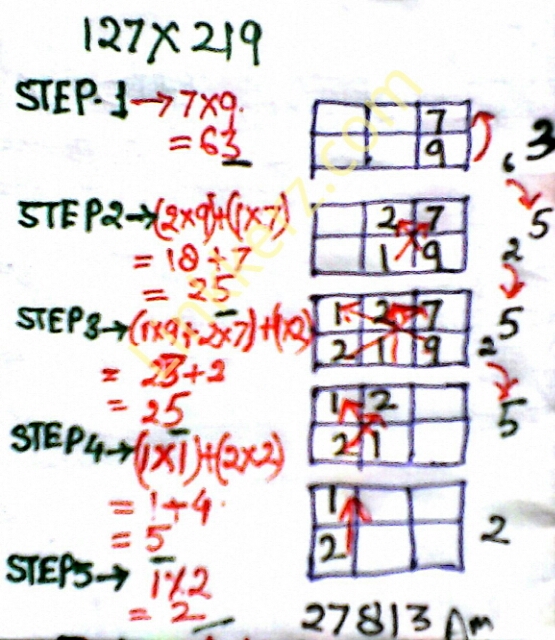 127 X 219
STEP-1 → 7x9
= 63
7
9
6 3
5
STEP2 → (2x9)+(1x7)
= 18 + 7
= 25
2 7
1 9
2
5
STEP3 → (1x9+2x7)+(1x2)
= 23+2
= 25
1 2 7
2 1 9
2
5
STEP4 → (1x1)+(2x2)
= 1+4
= 5
1 2
2 1
STEP5 → 1x2
= 2
1
2
2
27813